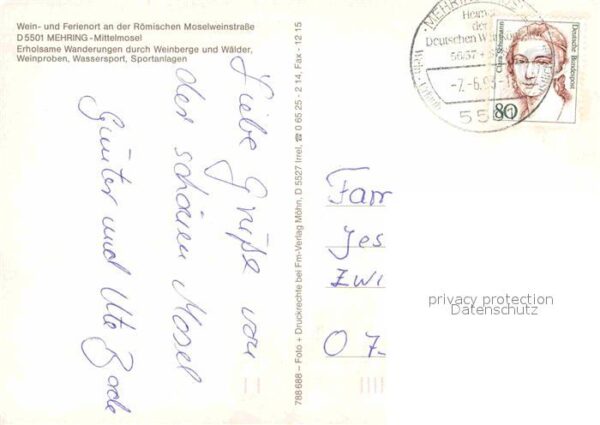 Wein- und Ferienort an der Römischen Moselweinstraße
D 5501 MEHRING - Mittelmosel
Erholsame Wanderungen durch Weinberge und Wälder,
Weinproben, Wassersport, Sportanlagen
Liebe Grüße von
der schönen Mosel
Günter und Ute
788 688 – Foto + Druckrechte bei Fm-Verlag Möhn, D 5527 Irrel, ☎ 0 65 25 - 2 14, Fax - 12 15
MEHRING
der
Deutschen
-7.-6.93
55
Clara Schumann
Deutsche Bundespost
80
Fam
Jes
Zwi
O 7
privacy protection
Datenschutz